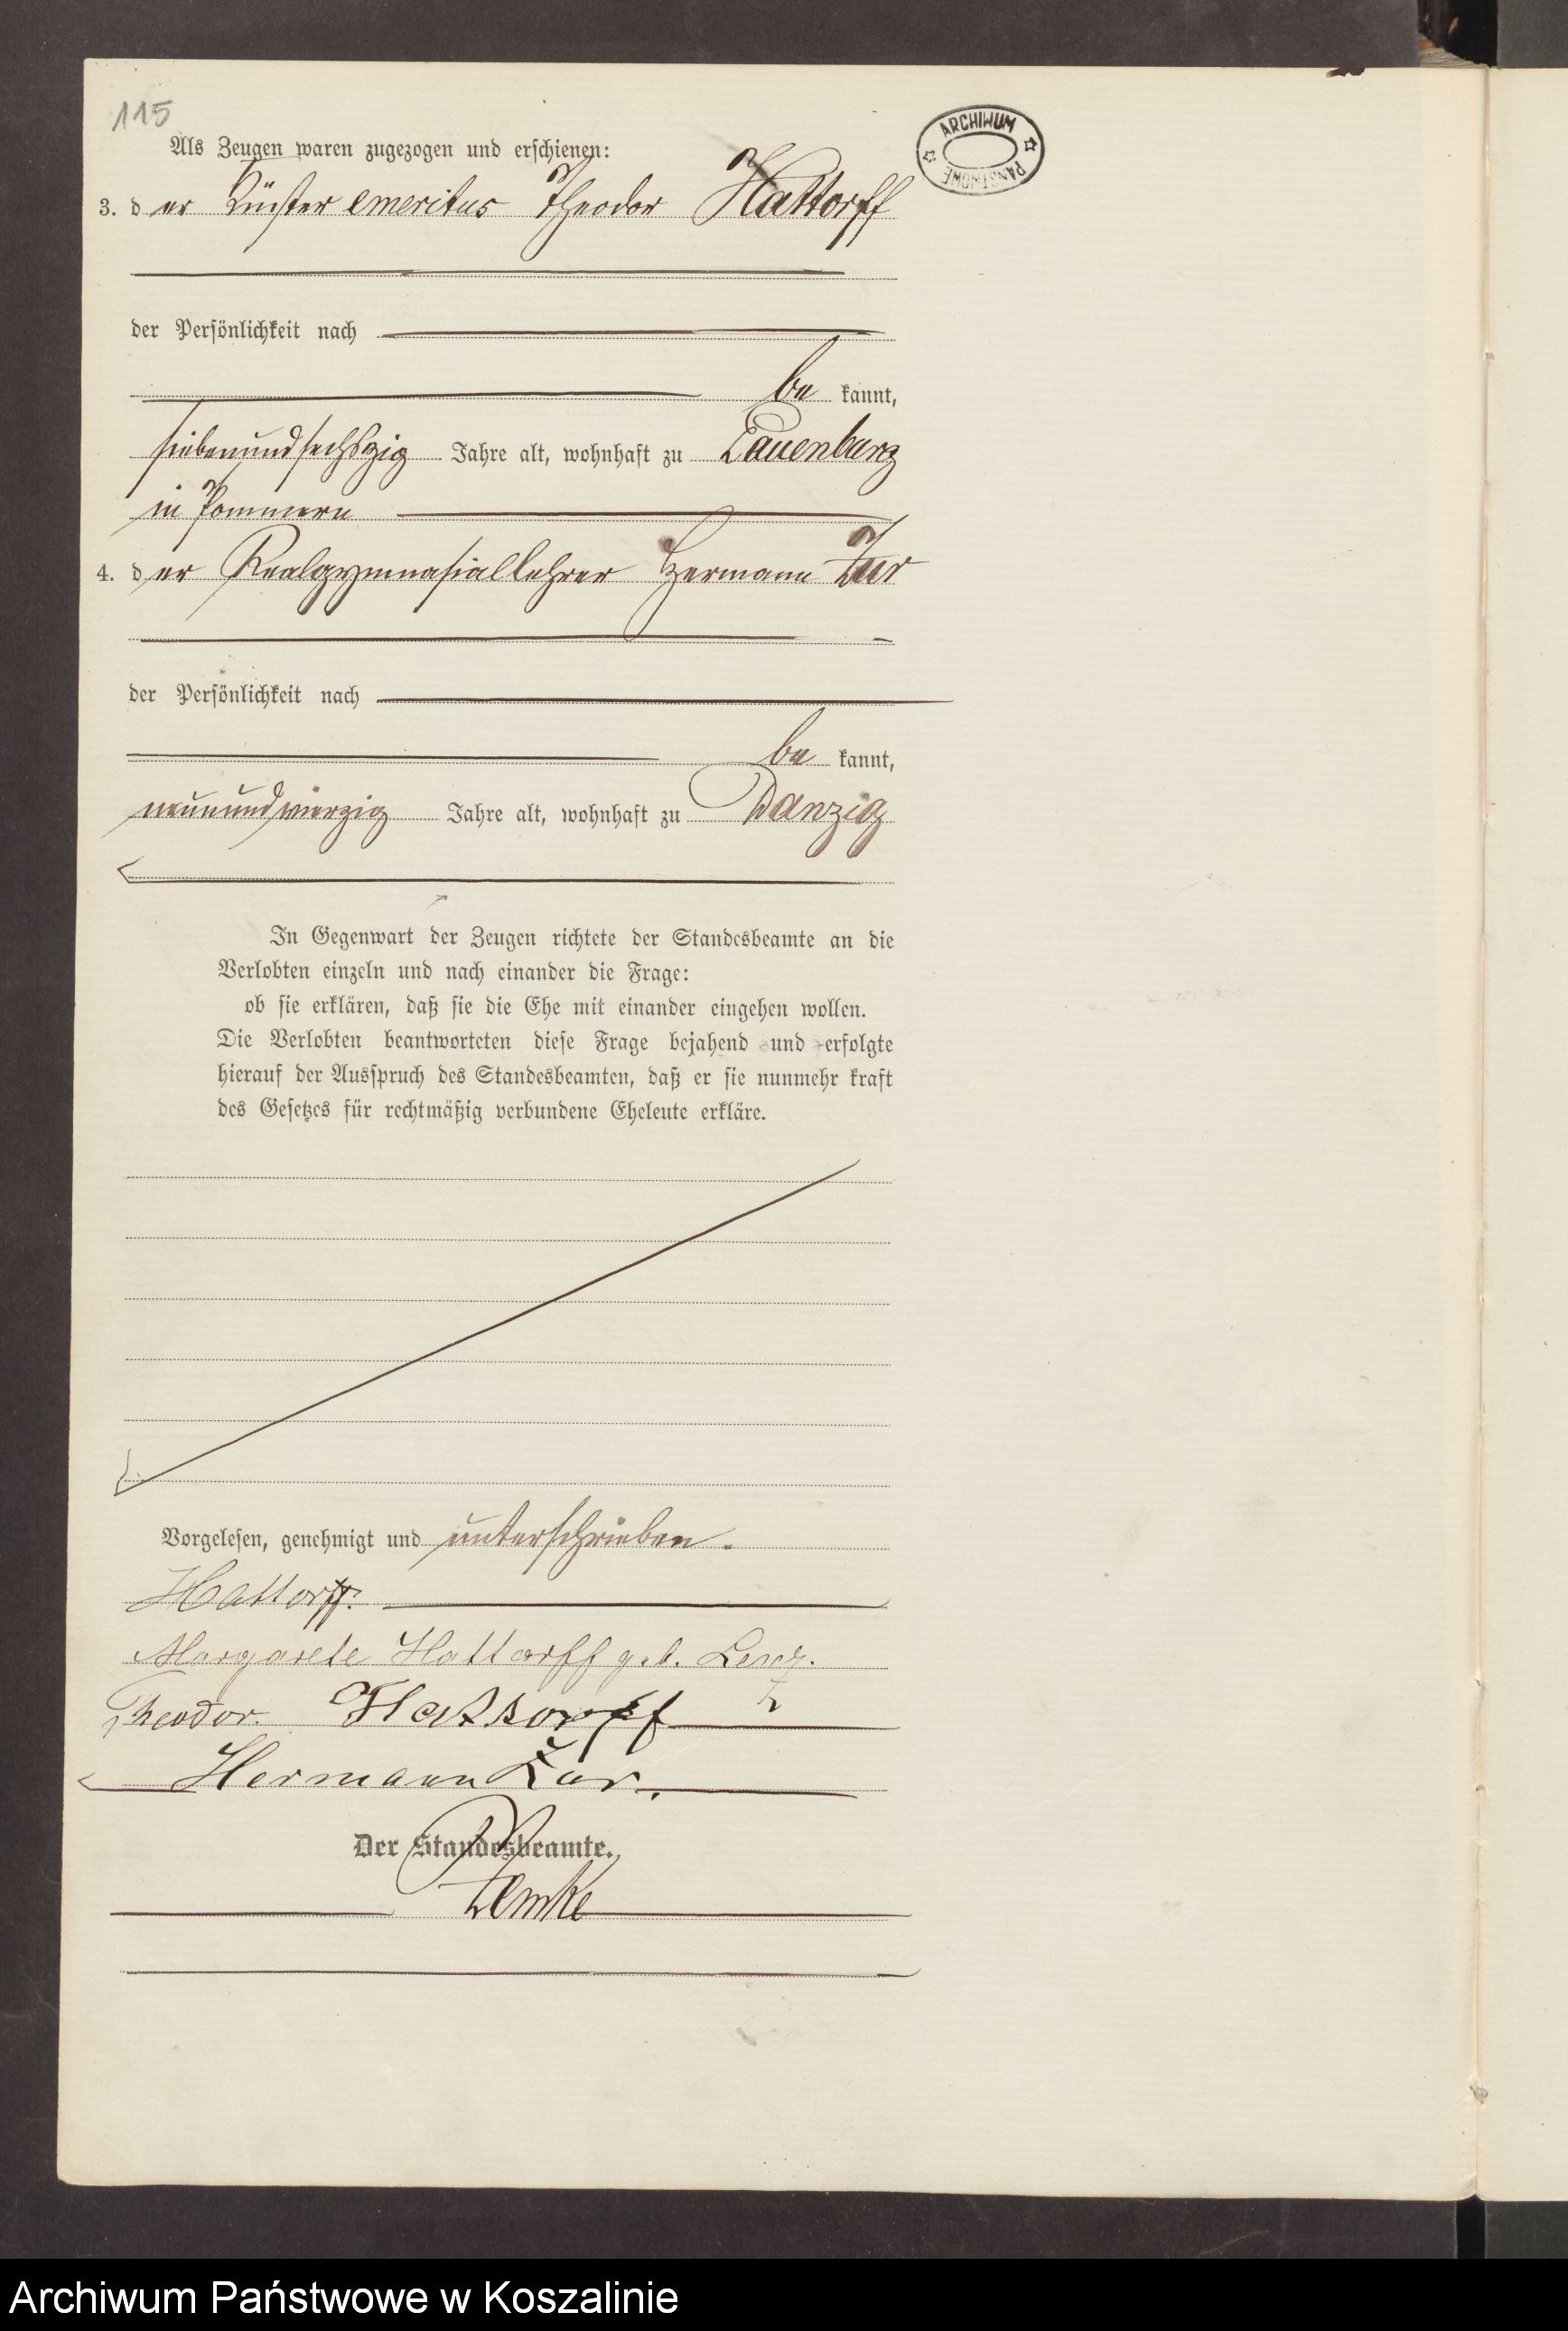 115
ARCHIWUM
PAŃSTWOWE
Als Zeugen waren zugezogen und erschienen:
3. der Küster emeritus Theodor Hattorff
der Persönlichkeit nach
be kannt,
siebenundsechszig Jahre alt, wohnhaft zu Lauenburg
in Pommern
4. der Realgymnasiallehrer Hermann Zur
der Persönlichkeit nach
be kannt,
neunundvierzig Jahre alt, wohnhaft zu Danzig
In Gegenwart der Zeugen richtete der Standesbeamte an die
Verlobten einzeln und nach einander die Frage:
ob sie erklären, daß sie die Ehe mit einander eingehen wollen.
Die Verlobten beantworteten diese Frage bejahend und erfolgte
hierauf der Ausspruch des Standesbeamten, daß er sie nunmehr kraft
des Gesetzes für rechtmäßig verbundene Eheleute erkläre.
Vorgelesen, genehmigt und unterschrieben.
Hattorff.
Margarete Hattorff geb. Lenz.
Theodor. Hattorff
Hermann Zur.
Der Standesbeamte.
Zemke
Archiwum Państwowe w Koszalinie